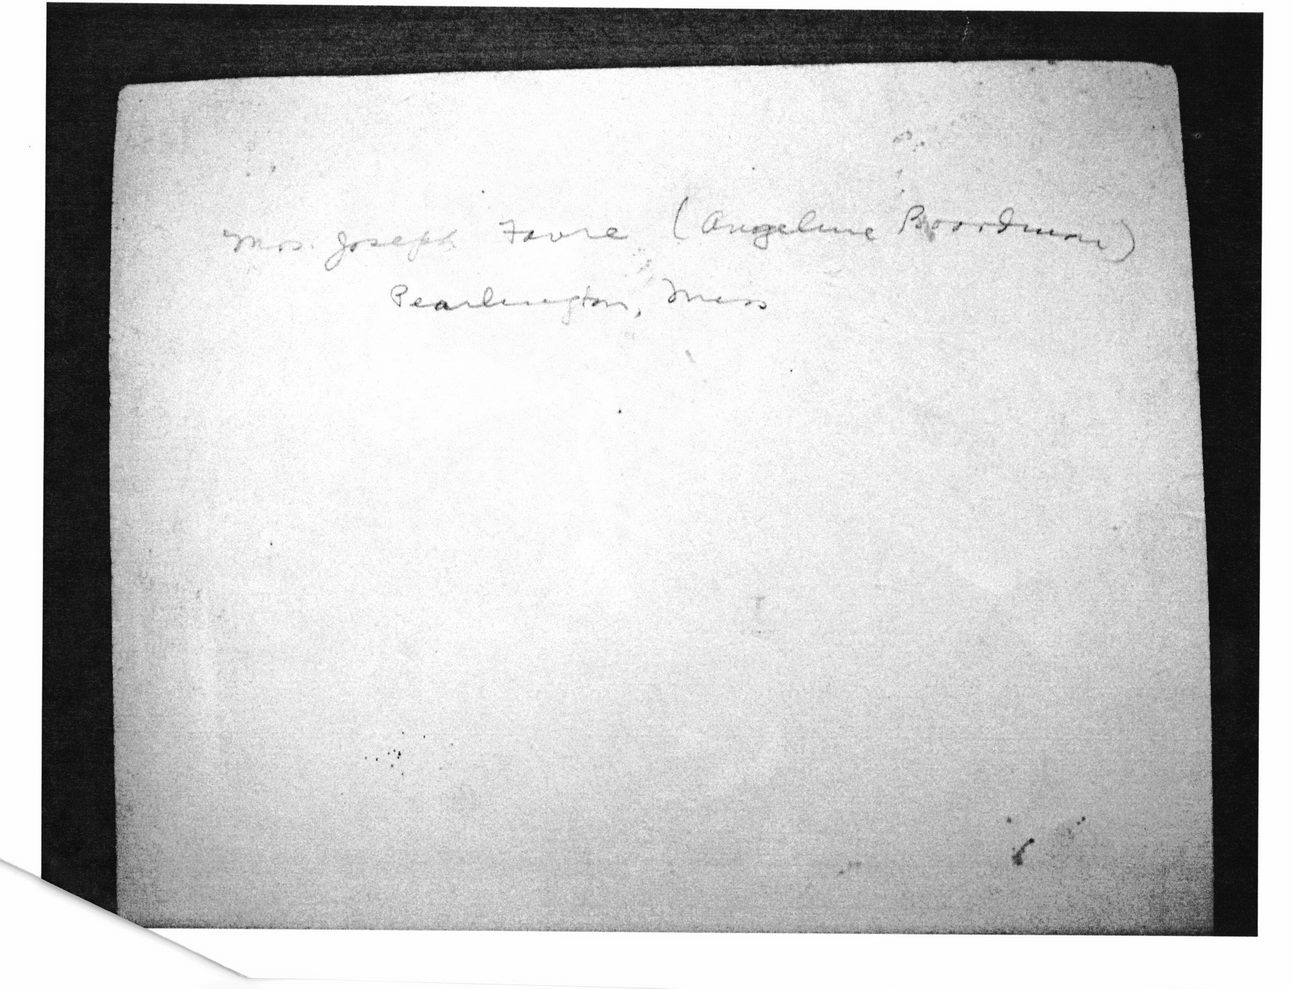 Mrs. Joseph Favre (Angeline Boardman)
Pearlington, Miss